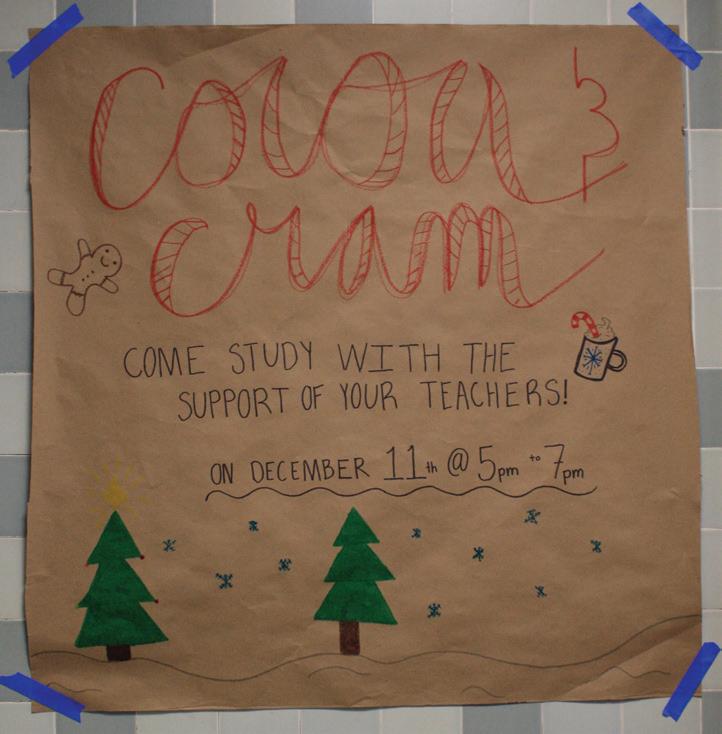 Cocoa &
cram
COME STUDY WITH THE
SUPPORT OF YOUR TEACHERS!
ON DECEMBER 11th @ 5pm to 7pm